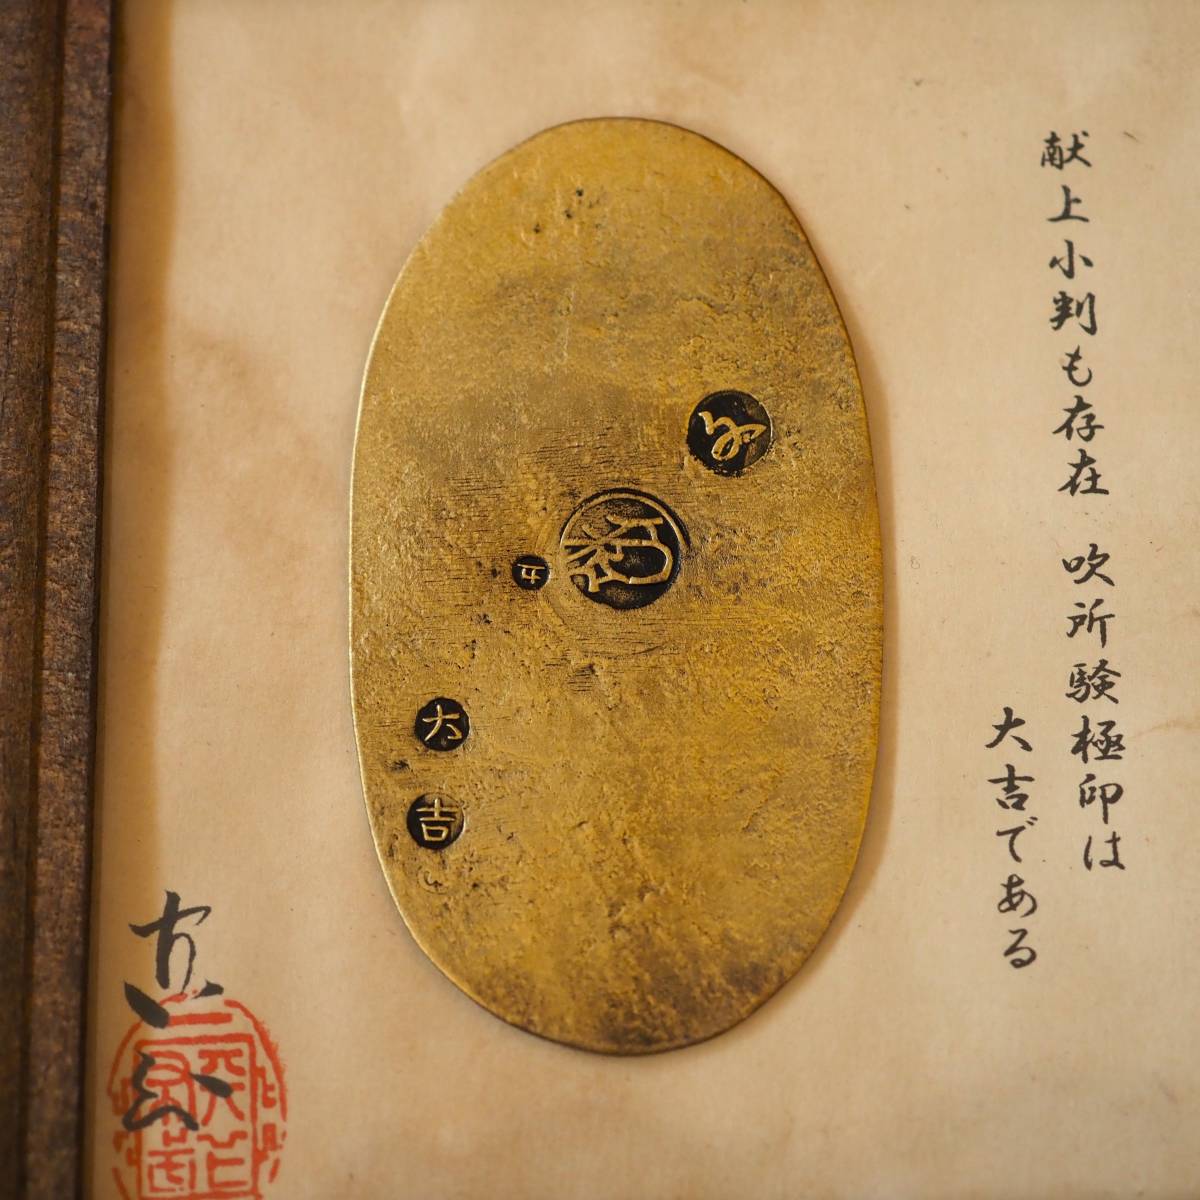 献上小判も存在　吹所験極印は
大吉である
五
大
吉